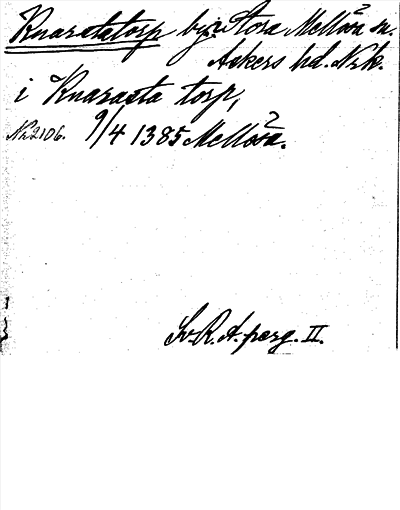 Knarstatorp by, Stora Mellösa sn.
Askers hd. Nrk.
i Knarasta torp,
Nr 2106. 9/4 1385 Mellösa.
Sv. R. A. perg. II.